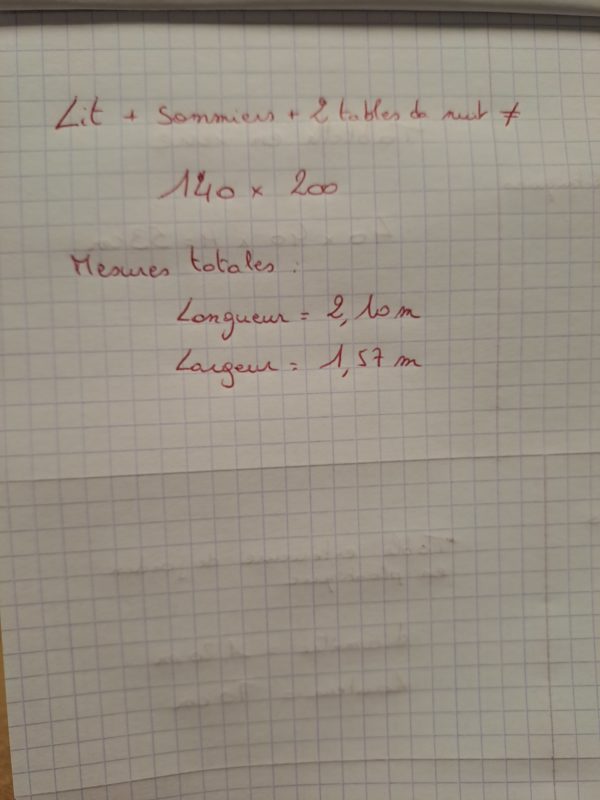 Lit + Sommiers + 2 tables de nuit ≠
140 x 200
Mesures totales :
Longueur = 2,10 m
Largeur = 1,57 m